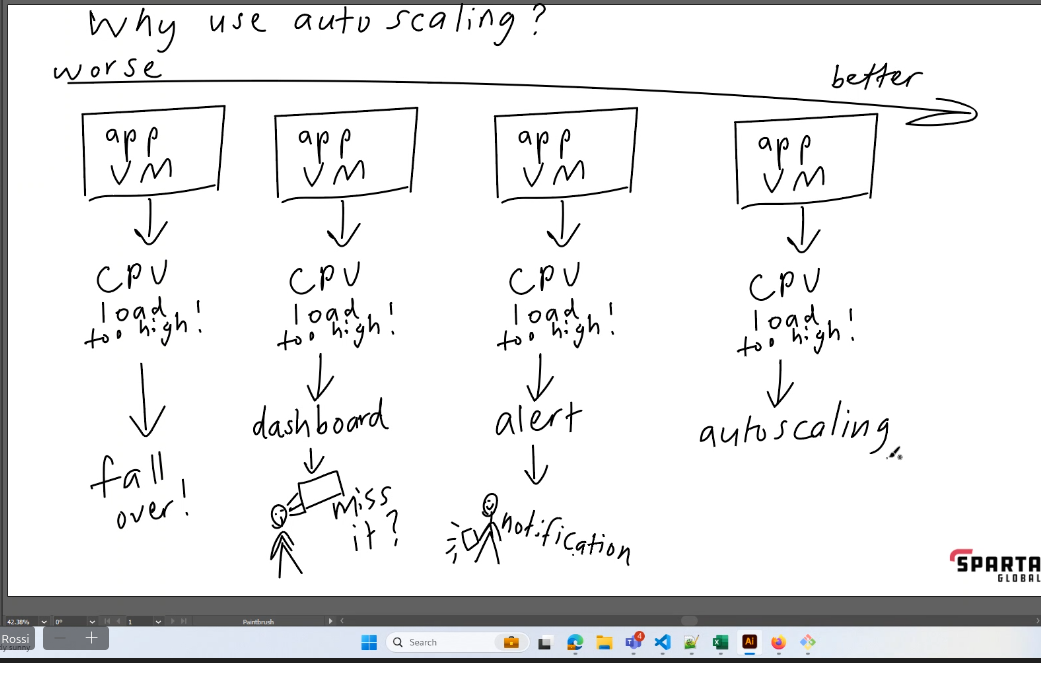 Why use auto scaling?
worse
better
app
VM
CPU
load
too high!
fall
over!
app
VM
CPU
load
too high!
dashboard
miss
it?
app
VM
CPU
load
too high!
alert
notification
app
VM
CPU
load
too high!
autoscaling
SPARTA
GLOBAL
42.38%
0°
1
Paintbrush
Rossi
ly sunny
Search
4
Ai